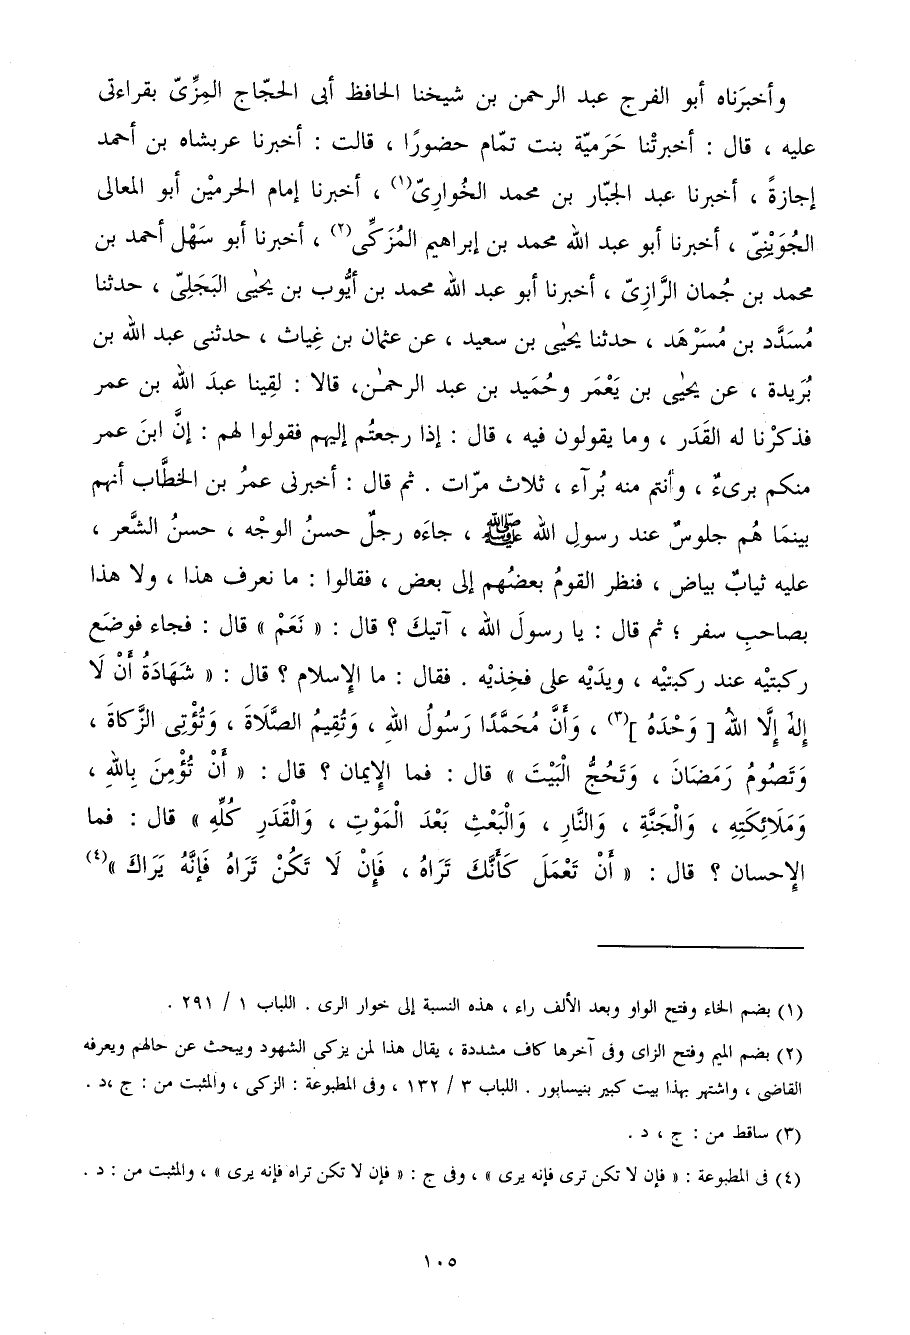 وأخبرَناه أبو الفرج عبد الرحمن بن شيخنا الحافظ أبى الحجّاج المِزِّىّ بقراءتى
عليه ، قال : أخبرتْنا حَرَميّة بنت تمّام حضورًا ، قالت : أخبرنا عربشاه بن أحمد
إجازةً ، أخبرنا عبد الجبّار بن محمد الخُوارِىّ(١) ، أخبرنا إمام الحرميْن أبو المعالى
الجُوَيْنِىّ ، أخبرنا أبو عبد الله محمد بن إبراهيم المُزَكِّى(٢) ، أخبرنا أبو سَهْل أحمد بن
محمد بن جُمان الرَّازِىّ ، أخبرنا أبو عبد الله محمد بن أيُّوب بن يحيٰى البَجَلِىّ ، حدثنا
مُسَدَّد بن مُسَرْهَد ، حدثنا يحيٰى بن سعيد ، عن عثمان بن غِياث ، حدثنى عبد الله بن
بُرَيدة ، عن يحيٰى بن يَعْمَر وحُمَيد بن عبد الرحمـٰن، قالا : لقِينا عبدَ الله بن عمر
فذكرْنا له القَدَر ، وما يقولون فيه ، قال : إذا رجعتُم إليهم فقولوا لهم : إنَّ ابنَ عمر
منكم برىءٌ ، وأنتم منه بُرآء ، ثلاث مرّات . ثم قال : أخبرنى عمرُ بن الخطَّاب أنهم
بينمَا هُم جلوسٌ عند رسولِ الله ﷺ ، جاءَه رجلٌ حسنُ الوجْه ، حسنُ الشَّعر ،
عليه ثيابٌ بياض ، فنظر القومُ بعضُهم إلى بعض ، فقالوا : ما نعرف هذا ، ولا هذا
بصاحبِ سفر ؛ ثم قال : يا رسولَ الله ، آتيكَ ؟ قال : « نَعَمْ » قال : فجاء فوضَع
ركبتيْه عند ركبتيْه ، ويدَيْه على فخِذيْه . فقال : ما الإسلام ؟ قال : « شَهَادَةُ أَنْ لَا
إِلهَ إِلَّا اللهُ [ وَحْدَهُ ](٣) ، وَأَنَّ مُحَمَّدًا رَسُولُ اللهِ ، وَتُقِيمُ الصَّلَاةَ ، وَتُؤْتِى الزَّكاةَ ،
وَتَصُومُ رَمَضَانَ ، وَتَحُجُّ الْبَيْتَ » قال : فما الإيمان ؟ قال : « أَنْ تُؤْمِنَ بِاللهِ ،
وَمَلَائِكَتِهِ ، وَالْجَنَّةِ ، وَالنَّارِ ، وَالْبَعْثِ بَعْدَ الْمَوْتِ ، وَالْقَدَرِ كُلِّهِ » قال : فما
الإحسان ؟ قال : « أَنْ تَعْمَلَ كَأَنَّكَ تَرَاهُ ، فَإِنْ لَا تَكُنْ تَرَاهُ فَإِنَّهُ يَرَاكَ »(٤)
(١) بضم الخاء وفتح الواو وبعد الألف راء ، هذه النسبة إلى خوار الرى . اللباب ١ / ٢٩١ .
(٢) بضم الميم وفتح الزاى وفى آخرها كاف مشددة ، يقال هذا لمن يزكى الشهود ويبحث عن حالهم ويعرفه
القاضى ، واشتهر بهذا بيت كبير بنيسابور . اللباب ٣ / ١٣٢ ، وفى المطبوعة : الزكى ، والمثبت من : ج ،د .
(٣) ساقط من : ج ، د .
(٤) فى المطبوعة : « فإن لا تكن ترى فإنه يرى » ، وفى ج : « فإن لا تكن تراه فإنه يرى » ، والمثبت من : د .
١٠٥